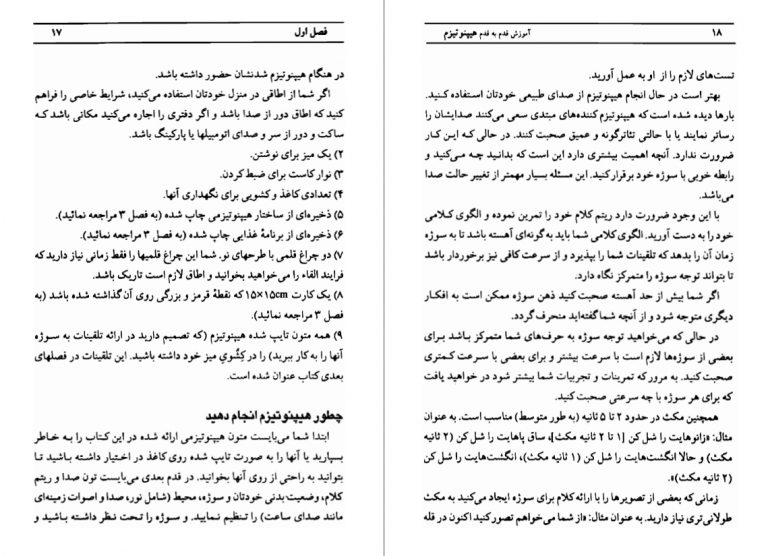 فصل اول ۱۷
در هنگام هیپنوتیزم شدنشان حضور داشته باشد.
اگر شما از اطاقی در منزل خودتان استفاده می‌کنید، شرایط خاصی را فراهم
کنید که اطاق دور از صدا باشد و اگر دفتری را اجاره می‌کنید مکانی باشد که
ساکت و دور از سر و صدای اتومبیلها یا پارکینگ باشد.
۲) یک میز برای نوشتن.
۳) نوار کاست برای ضبط کردن.
۴) تعدادی کاغذ و کشویی برای نگهداری آنها.
۵) ذخیره‌ای از ساختار هیپنوتیزمی چاپ شده (به فصل ۳ مراجعه نمائید).
۶) ذخیره‌ای از برنامهٔ غذایی چاپ شده (به فصل ۳ مراجعه نمائید).
۷) دو چراغ قلمی با طرحهای نو. شما این چراغ قلمیها را فقط زمانی نیاز دارید که
فرایند القاء را می‌خواهید بخوانید و اطاق لازم است تاریک باشد.
۸) یک کارت ۱۵×۱۵cm که نقطهٔ قرمز و بزرگی روی آن گذاشته شده باشد (به
فصل ۳ مراجعه نمائید).
۹) همه متون تایپ شده هیپنوتیزم (که تصمیم دارید در ارائه تلقینات به سوژه
آنها را به کار ببرید) را در کِشُوي میز خود داشته باشید. این تلقینات در فصلهای
بعدی کتاب عنوان شده است.
چطور هیپنوتیزم انجام دهید
ابتدا شما می‌بایست متون هیپنوتیزمی ارائه شده در این کتاب را به خاطر
بسپارید یا آنها را به صورت تایپ شده روی کاغذ در اختیار داشته باشید تا
بتوانید به راحتی از روی آنها بخوانید. در قدم بعدی می‌بایست تون صدا و ریتم
کلام، وضعیت بدنی خودتان و سوژه، محیط (شامل نور، صدا و اصوات زمینه‌ای
مانند صدای ساعت) را تنظیم نمایید. و سوژه را تحت نظر داشته باشید و
۱۸ آموزش قدم به قدم هیپنوتیزم
تست‌های لازم را از او به عمل آورید.
بهتر است در حال انجام هیپنوتیزم از صدای طبیعی خودتان استفاده کنید.
بارها دیده شده است که هیپنوتیزم کننده‌های مبتدی سعی می‌کنند صدایشان را
رساتر نمایند یا با حالتی تئاترگونه و عمیق صحبت کنند. در حالی که این کار
ضرورت ندارد. آنچه اهمیت بیشتری دارد این است که بدانید چه می‌کنید و
رابطه خوبی با سوژه خود برقرار کنید. این مسئله بسیار مهمتر از تغییر حالت صدا
می‌باشد.
با این وجود ضرورت دارد ریتم کلام خود را تمرین نموده و الگوی کلامی
خود را به دست آورید. الگوی کلامی شما باید به گونه‌ای آهسته باشد تا به سوژه
زمان آن را بدهد که تلقینات شما را بپذیرد و از سرعت کافی نیز برخوردار باشد
تا بتواند توجه سوژه را متمرکز نگاه دارد.
اگر شما بیش از حد آهسته صحبت کنید ذهن سوژه ممکن است به افکار
دیگری متوجه شود و از آنچه شما گفته‌اید منحرف گردد.
در حالی که می‌خواهید توجه سوژه به حرف‌های شما متمرکز باشد برای
بعضی از سوژه‌ها لازم است با سرعت بیشتر و برای بعضی با سرعت کمتری
صحبت کنید. به مرور که تمرینات و تجربیات شما بیشتر شود در خواهید یافت
که برای هر سوژه با چه سرعتی صحبت کنید.
همچنین مکث در حدود ۲ تا ۵ ثانیه (به طور متوسط) مناسب است. به عنوان
مثال: «زانوهایت را شل کن [۱ تا ۲ ثانیه مکث]، ساق پاهایت را شل کن (۲ ثانیه
مکث) و حالا انگشت‌هایت را شل کن (۱ ثانیه مکث)، انگشت‌هایت را شل کن
(۲ ثانیه مکث)».
زمانی که بعضی از تصویرها را با ارائه کلام برای سوژه ایجاد می‌کنید به مکث
طولانی‌تری نیاز دارید. به عنوان مثال: «از شما می‌خواهم تصور کنید اکنون در قله